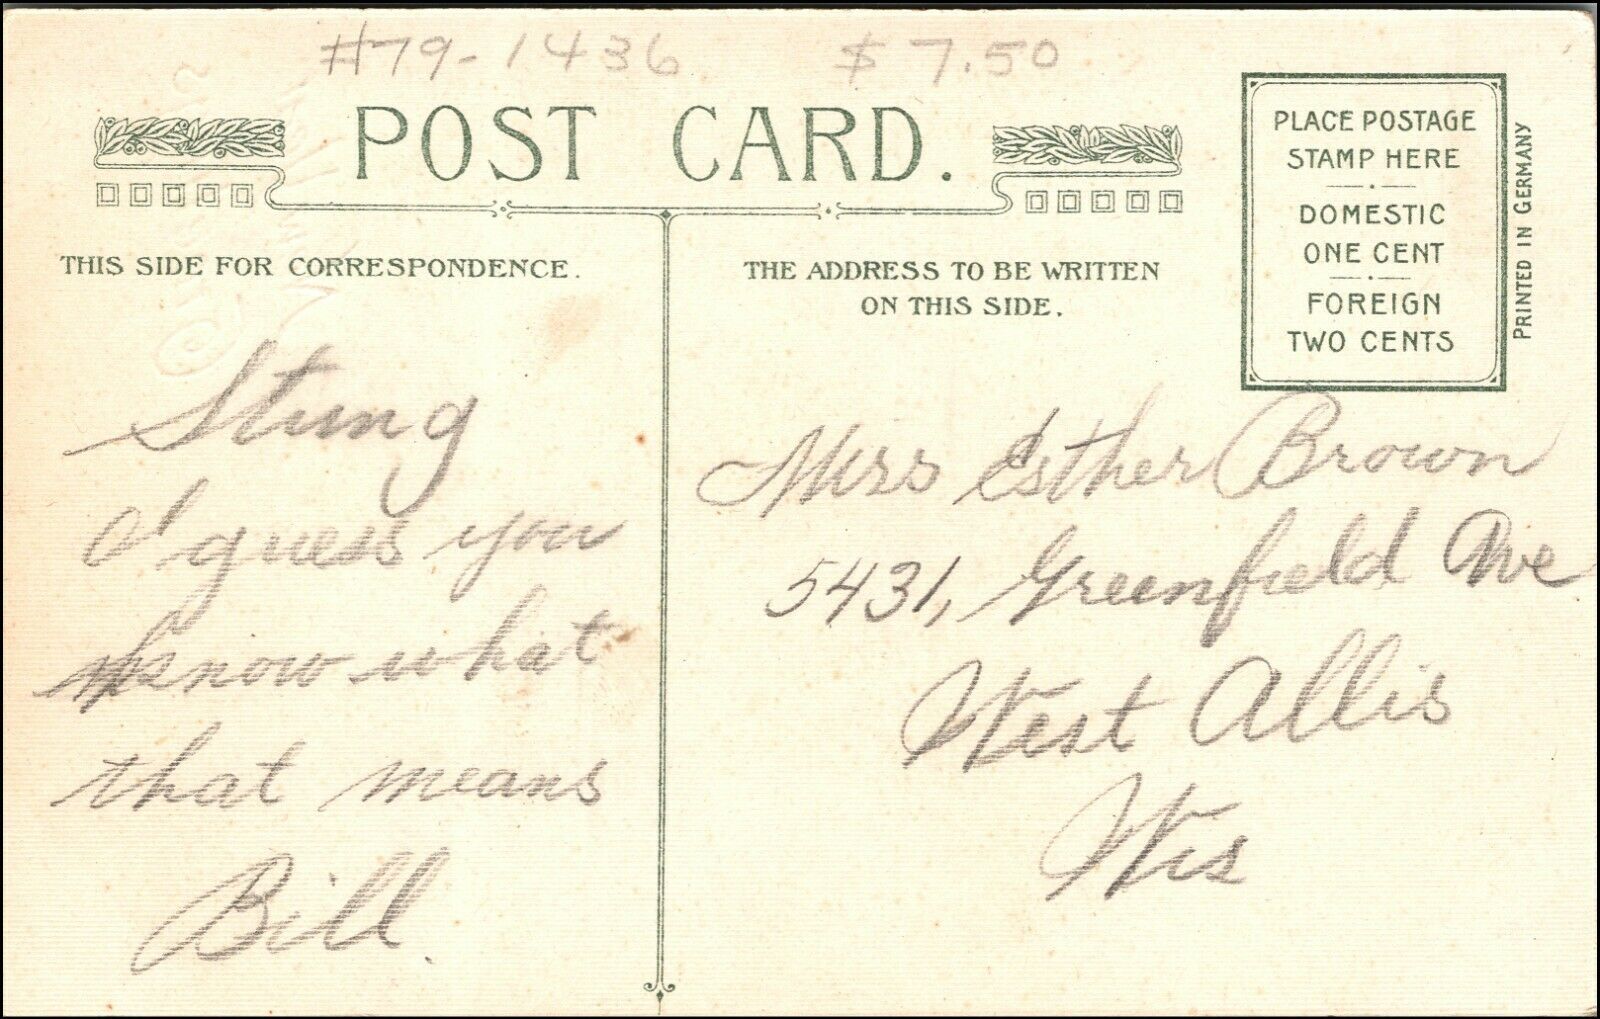 #79-1436 $7.50
POST CARD.
THIS SIDE FOR CORRESPONDENCE.
Stung
I guess you
know what
that means
Bill
THE ADDRESS TO BE WRITTEN
ON THIS SIDE.
PLACE POSTAGE
STAMP HERE
DOMESTIC
ONE CENT
FOREIGN
TWO CENTS
PRINTED IN GERMANY
Miss Esther Brown
5431, Greenfield Ave
West Allis
Wis